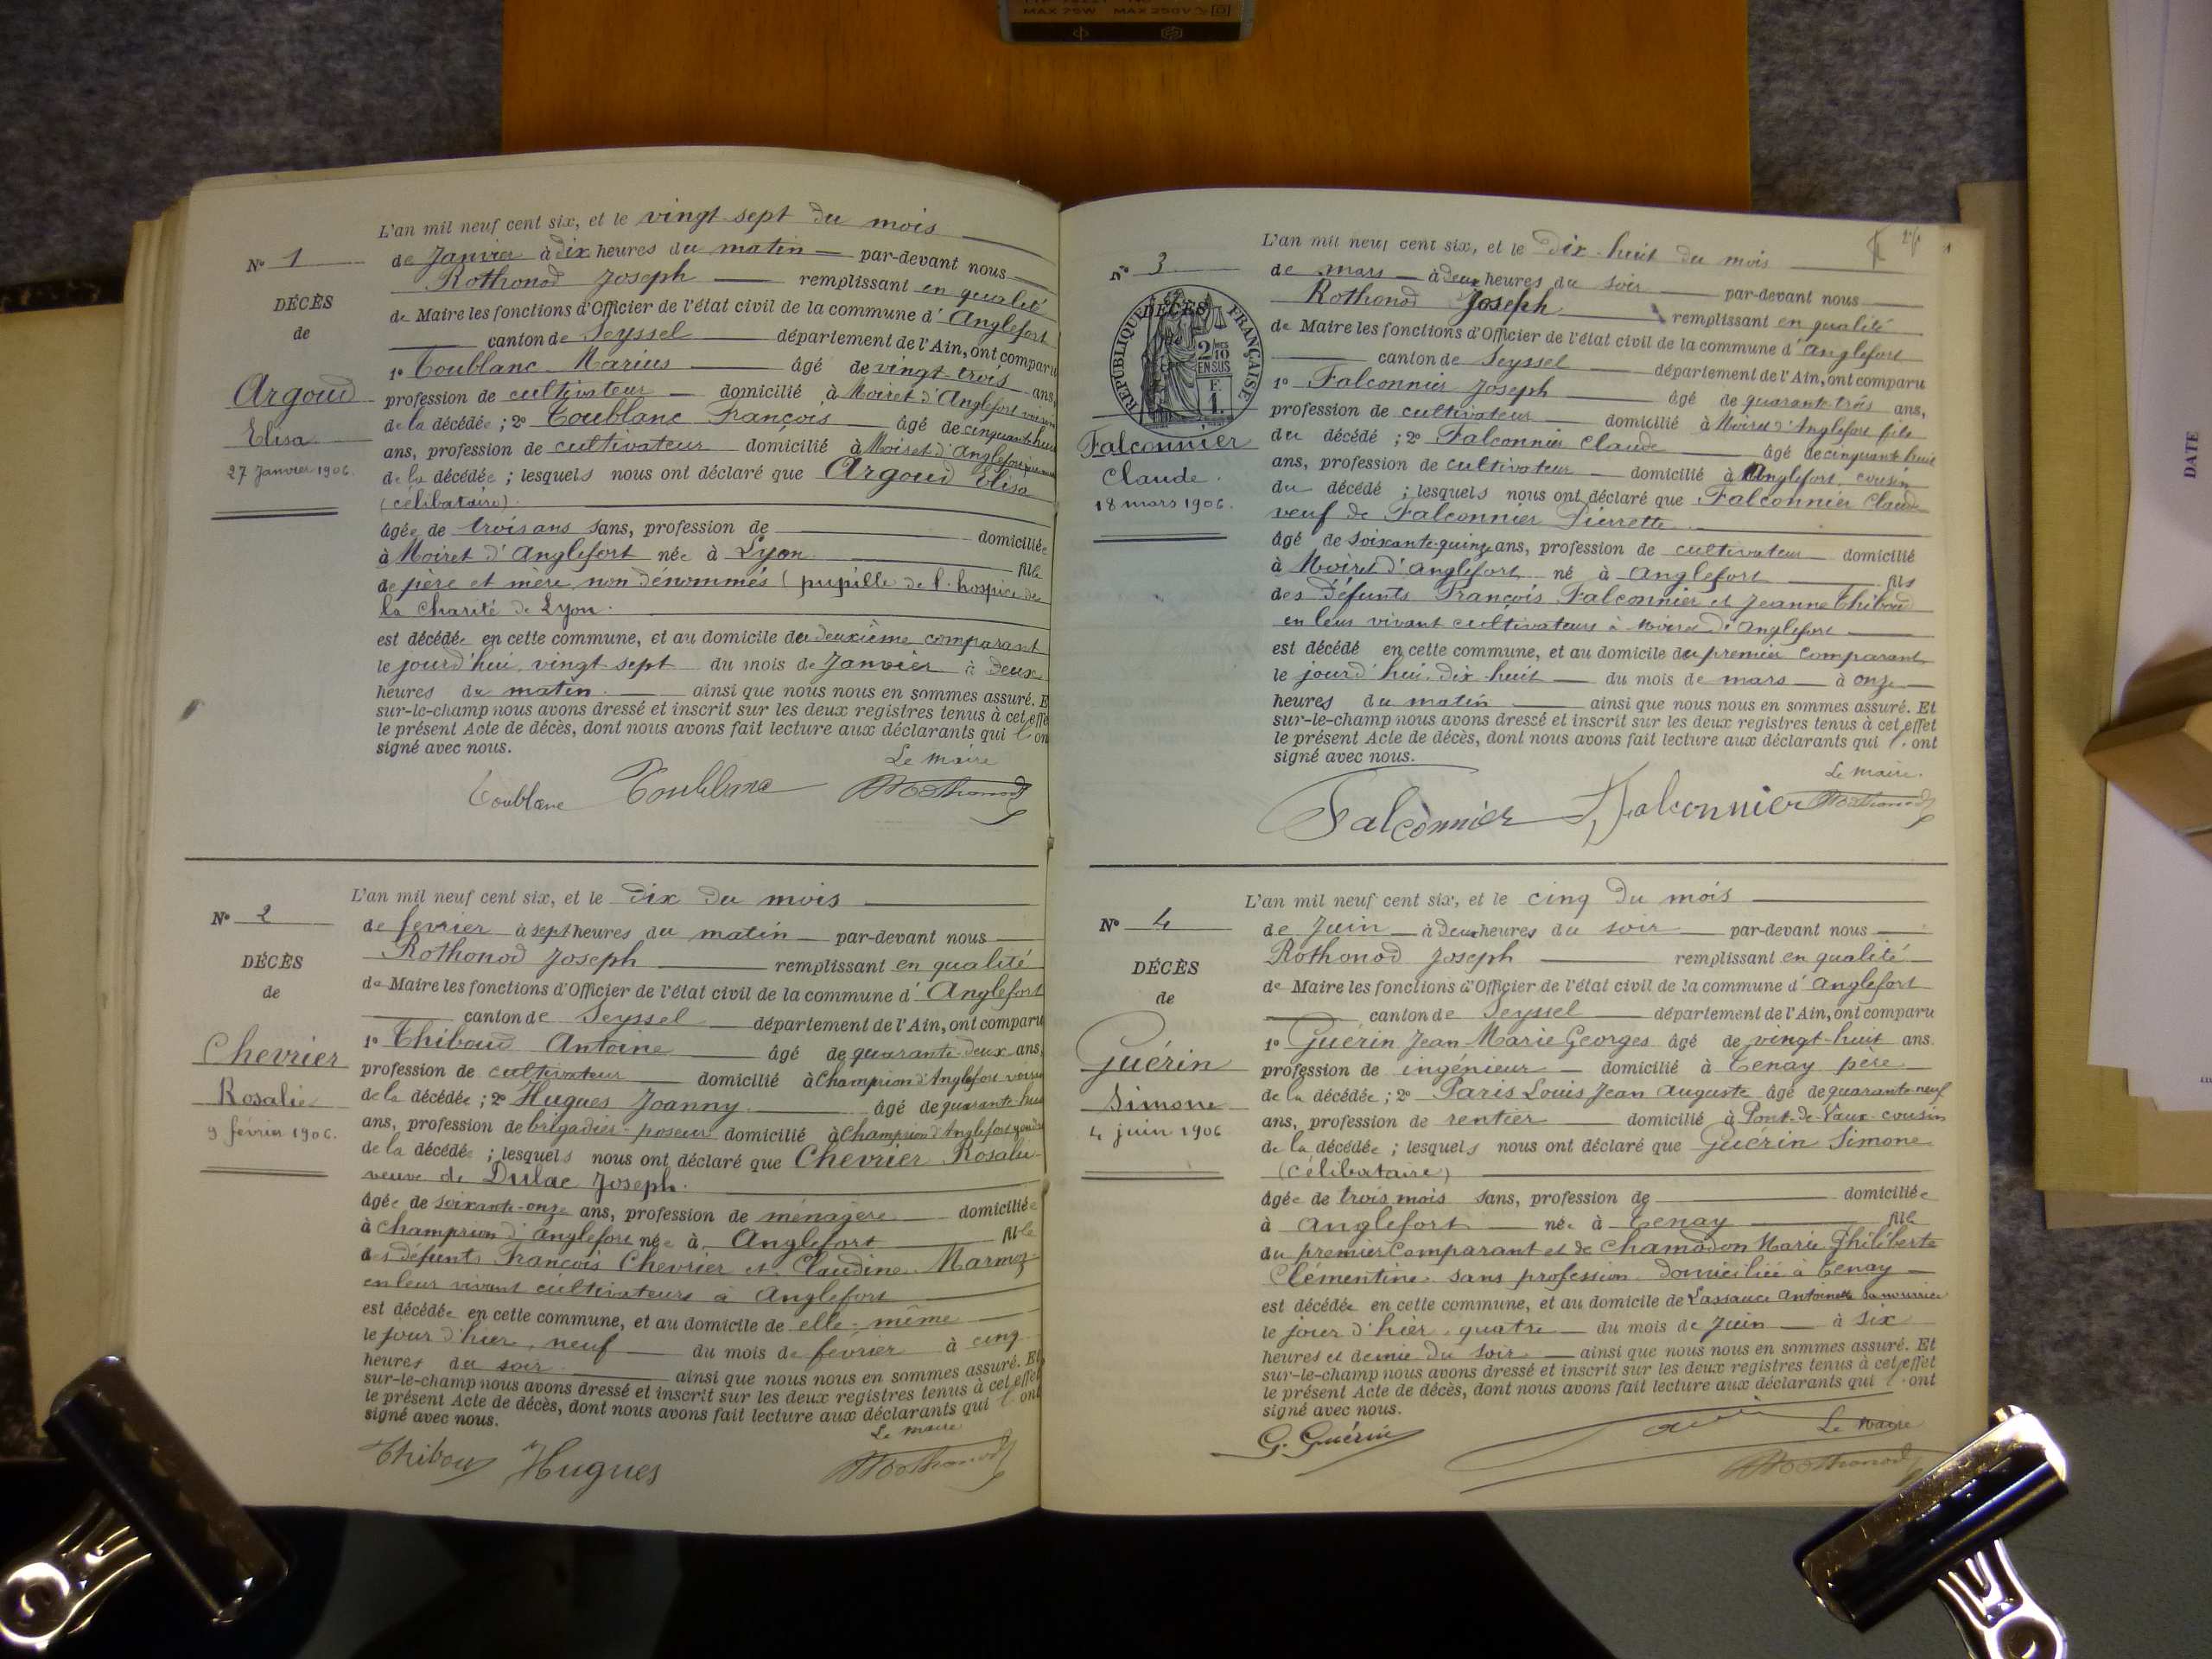 MAX 75W MAX 250V
L'an mil neuf cent six, et le vingt-sept du mois
N° 1
de Janvier à dix heures du matin par-devant nous
Rothonod Joseph remplissant en qualité
DÉCÈS
de Maire les fonctions d'Officier de l'état civil de la commune d'Anglefort
de
canton de Seyssel département de l'Ain, ont comparu
1° Toublanc Marius âgé de vingt-trois ans,
Argoud
profession de cultivateur domicilié à Moiret d'Anglefort voisin
Elisa
de la décédée ; 2° Toublanc François âgé de cinquante huit
27 Janvier 1906
ans, profession de cultivateur domicilié à Moiret d'Anglefort
de la décédée ; lesquels nous ont déclaré que Argoud Elisa
(célibataire)
âgée de trois ans sans, profession de domiciliée
à Moiret d'Anglefort née à Lyon fille
de père et mère non dénommés (pupille de l'hospice de
la Charité de Lyon.
est décédée en cette commune, et au domicile du deuxième comparant
le jourd'hui vingt-sept du mois de Janvier à deux
heures du matin ainsi que nous nous en sommes assuré. E
sur-le-champ nous avons dressé et inscrit sur les deux registres tenus à cet effe
le présent Acte de décès, dont nous avons fait lecture aux déclarants qui l'on
signé avec nous.
Le maire
Toublanc Toublanc Rothonod
L'an mil neuf cent six, et le dix du mois
N° 2
de fevrier à sept heures du matin par-devant nous
Rothonod Joseph remplissant en qualité
DÉCÈS
de Maire les fonctions d'Officier de l'état civil de la commune d'Anglefort
de
canton de Seyssel département de l'Ain, ont comparu
1° Thiboud Antoine âgé de quarante-deux ans,
Chevrier
profession de cultivateur domicilié à Champrion d'Anglefort voisin
Rosalie
de la décédée ; 2° Hugues Joanny âgé de quarante-huit
9 février 1906.
ans, profession de brigadier-poseur domicilié à Champrion d'Anglefort gendre
de la décédée ; lesquels nous ont déclaré que Chevrier Rosalie
veuve de Dulac Joseph.
âgée de soixante-onze ans, profession de ménagère domiciliée
à Champrion d'Anglefort née à Anglefort fille
des défunts François Chevrier et Claudine Marmoz
en leur vivant cultivateurs à Anglefort
est décédée en cette commune, et au domicile de elle-même
le jour d'hier, neuf du mois de février à cinq
heures du soir ainsi que nous nous en sommes assuré. Et
sur-le-champ nous avons dressé et inscrit sur les deux registres tenus à cet effet
le présent Acte de décès, dont nous avons fait lecture aux déclarants qui l'ont
signé avec nous.
Le maire
Thiboud Hugues Rothonod
L'an mil neuf cent six, et le dix-huit du mois
N° 3
de mars à deux heures du soir par-devant nous
Rothonod Joseph remplissant en qualité
DÉCÈS
RÉPUBLIQUE FRANÇAISE
2/10 EN SUS
F. 1.
de Maire les fonctions d'Officier de l'état civil de la commune d'Anglefort
canton de Seyssel département de l'Ain, ont comparu
1° Falconnier Joseph âgé de quarante-trois ans,
profession de cultivateur domicilié à Moiret d'Anglefort fils
Falconnier
du décédé ; 2° Falconnier Claude âgé de cinquante huit
Claude.
ans, profession de cultivateur domicilié à Anglefort, cousin
18 mars 1906.
du décédé ; lesquels nous ont déclaré que Falconnier Claude
veuf de Falconnier Pierrette
âgé de soixante-quinze ans, profession de cultivateur domicilié
à Moiret d'Anglefort né à Anglefort fils
des défunts François Falconnier et Jeanne Thiboud
en leur vivant cultivateurs à Moiret d'Anglefort
est décédé en cette commune, et au domicile du premier comparant
le jourd'hui dix-huit du mois de mars à onze
heures du matin ainsi que nous nous en sommes assuré. Et
sur-le-champ nous avons dressé et inscrit sur les deux registres tenus à cet effet
le présent Acte de décès, dont nous avons fait lecture aux déclarants qui l'ont
signé avec nous.
Le maire.
Falconnier Falconnier Rothonod
L'an mil neuf cent six, et le cinq du mois
N° 4
de Juin à deux heures du soir par-devant nous
Rothonod Joseph remplissant en qualité
DÉCÈS
de Maire les fonctions d'Officier de l'état civil de la commune d'Anglefort
de
canton de Seyssel département de l'Ain, ont comparu
1° Guérin Jean-Marie Georges âgé de vingt-huit ans
Guérin
profession de ingénieur domicilié à Tenay père
Simone
de la décédée ; 2° Paris Louis Jean Auguste âgé de quarante-neuf
4 juin 1906
ans, profession de rentier domicilié à Pont-de-Vaux cousin
de la décédée ; lesquels nous ont déclaré que Guérin Simone
(célibataire)
âgée de trois mois sans, profession de domiciliée
à Anglefort née à Tenay fille
du premier comparant et de Chamodon Marie Philiberte
Clémentine sans profession domiciliée à Tenay
est décédée en cette commune, et au domicile de Lassauce Antoinette sa nourrice
le jour d'hier quatre du mois de Juin à six
heures et demie du soir ainsi que nous nous en sommes assuré. Et
sur-le-champ nous avons dressé et inscrit sur les deux registres tenus à cet effet
le présent Acte de décès, dont nous avons fait lecture aux déclarants qui l'ont
signé avec nous.
Le maire
G. Guérin Rothonod
DATE